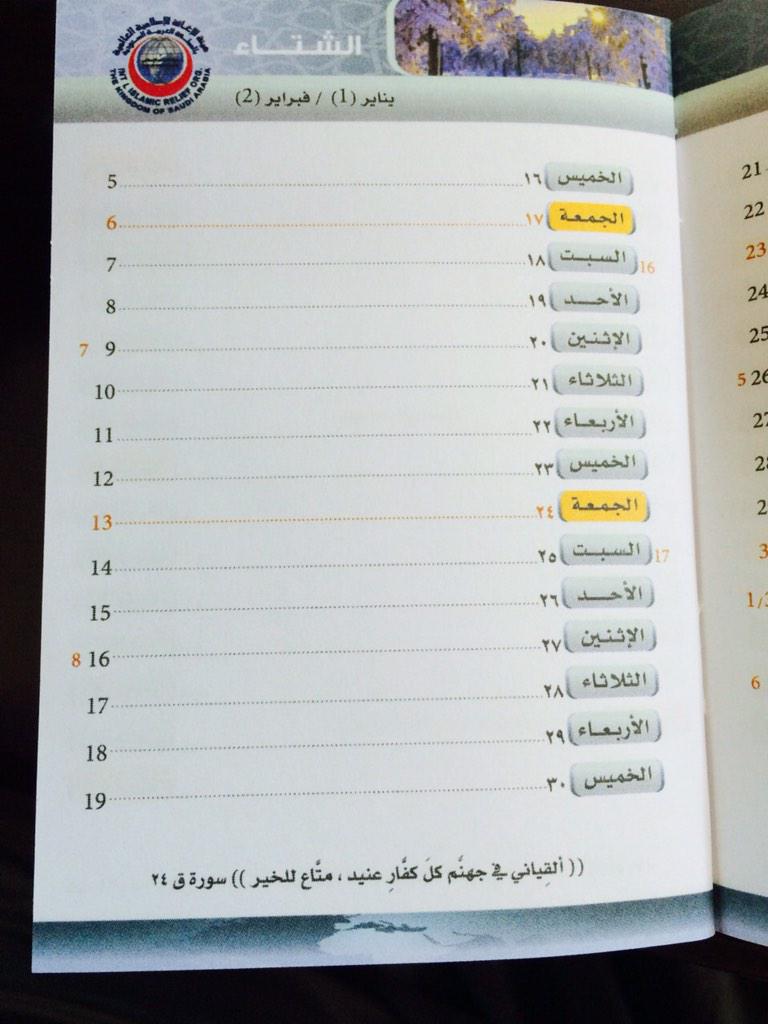 هيئة الإغاثة الإسلامية العالمية
INT'L ISLAMIC RELIEF ORG.
THE KINGDOM OF SAUDI ARABIA
الشتاء
يناير (1) / فبراير (2)
الخميس ١٦ 5
الجمعة ١٧ 6
16 السبت ١٨ 7
الأحد ١٩ 8
الإثنين ٢٠ 9 7
الثلاثاء ٢١ 10
الأربعاء ٢٢ 11
الخميس ٢٣ 12
الجمعة ٢٤ 13
17 السبت ٢٥ 14
الأحد ٢٦ 15
الإثنين ٢٧ 16 8
الثلاثاء ٢٨ 17
الأربعاء ٢٩ 18
الخميس ٣٠ 19
(( ألقِياني في جهنَّم كلَ كفَّارِ عنيد ، متَّاع للخير )) سورة ق ٢٤
21
22
23
24
25
5 26
6